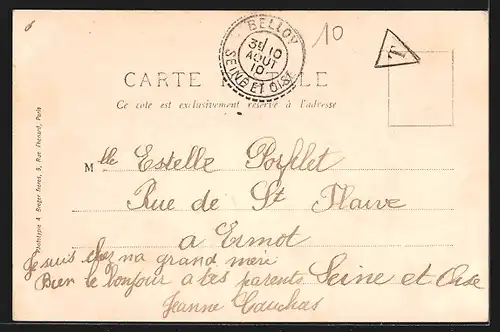 6
10
BELLOY
31 10
AOUT
10
SEINE ET OISE
T
CARTE POSTALE
Ce côté est exclusivement réservé à l'adresse
Mlle Estelle
Rue de St Flaive
a Ermot
Seine et Oise
Je suis chez ma grand meri
Bien le bonjour a tes parents
Jeanne Cauchas
Phototypie A. Breger frères, 9, Rue Thénard, Paris